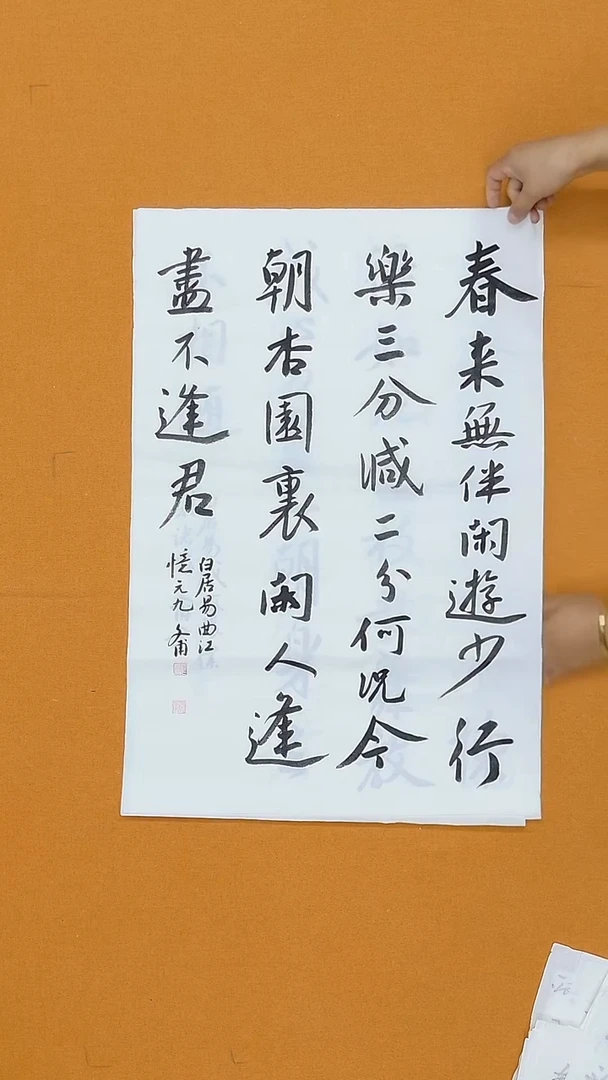 春来無伴閑遊少行
樂三分減二分何況今
朝杏園裏閑人逢
盡不逢君
白居易曲江
憶元九